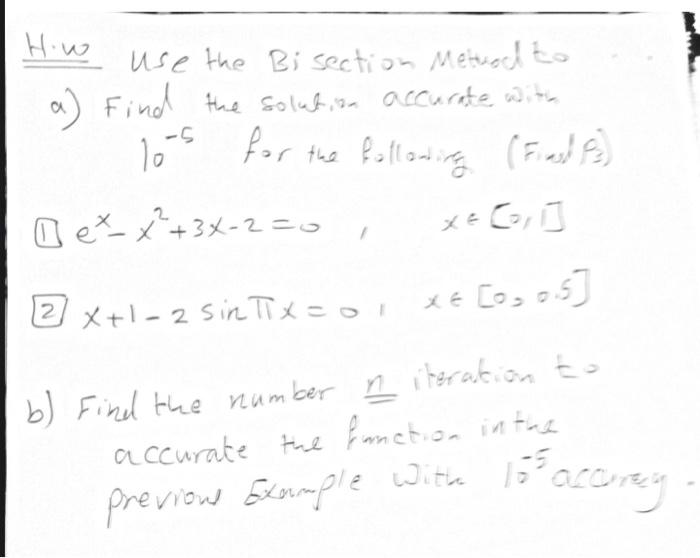 H.w Use the Bisection Method to
a) Find the solution accurate with
10^-5 for the following (Find P3)
1 e^x - x^2 + 3x - 2 = 0 , x ∈ [0, 1]
2 x + 1 - 2 sin πx = 0 , x ∈ [0, 0.5]
b) Find the number n iteration to
accurate the function in the
previous Example with 10^-5 accuracy.